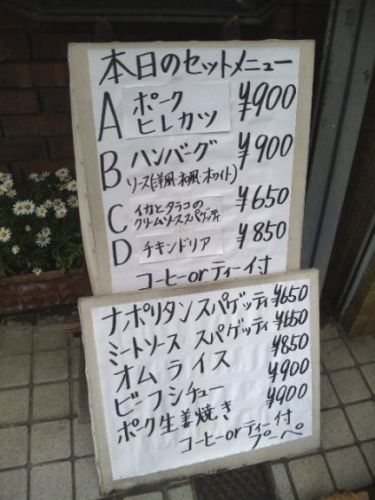 本日のセットメニュー
A ポーク
ヒレカツ ¥900
B ハンバーグ ¥900
ソース(洋風・和風・ホワイト)
C イカとタラコの
クリームソーススパゲッティ ¥650
D チキンドリア ¥850
コーヒーorティー付
ナポリタンスパゲッティ ¥650
ミートソーススパゲッティ ¥650
オムライス ¥850
ビーフシチュー ¥900
ポーク生姜焼き ¥900
コーヒーorティー付
プーペ